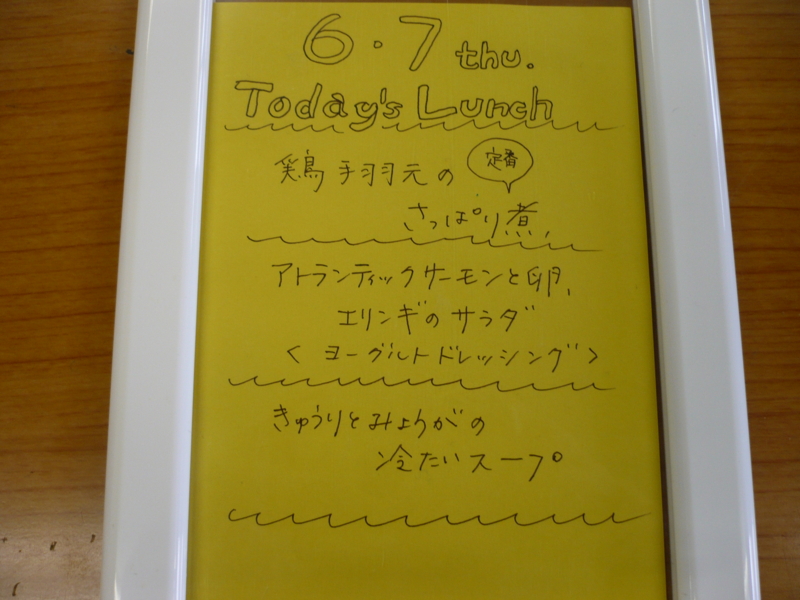 6・7 thu.
Today's Lunch
鶏手羽元の
定番
さっぱり煮,
アトランティックサーモンと卵,
エリンギのサラダ
<ヨーグルトドレッシング>
きゅうりとみょうがの
冷たいスープ